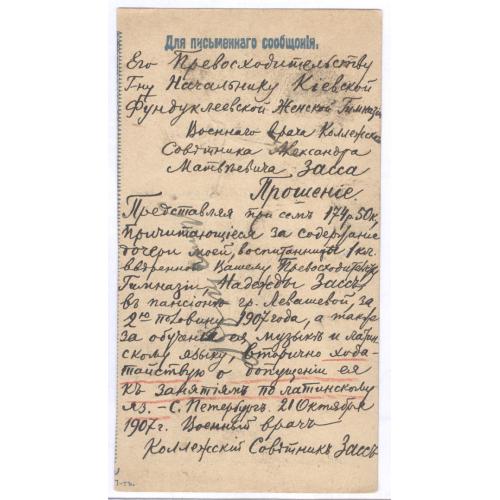 Для письменнаго сообщенія.
Его Превосходительству
Г-ну Начальнику Кіевской
Фундуклеевской Женской Гимназіи
Военнаго врача Коллежск.
Совѣтника Александра
Матвѣевича Засса
Прошеніе.
Представляя при семъ 174р. 50к,
причитающіеся за содержаніе
дочери моей, воспитанницы 1 кл.
ввѣренной Вашему Превосходительству
Гимназіи, Надежды Зассъ,
въ пансіонѣ гр. Левашевой за
2ую половину 1907 года, а также
за обученіе ея музыкѣ и латин-
скому языку, вторично хода-
тайствую о допущеніи ея
къ занятіямъ по латинскому
яз. – С. Петербургъ. 21 Октября
1907 г. Военный врачъ
Коллежскій Совѣтникъ Зассъ